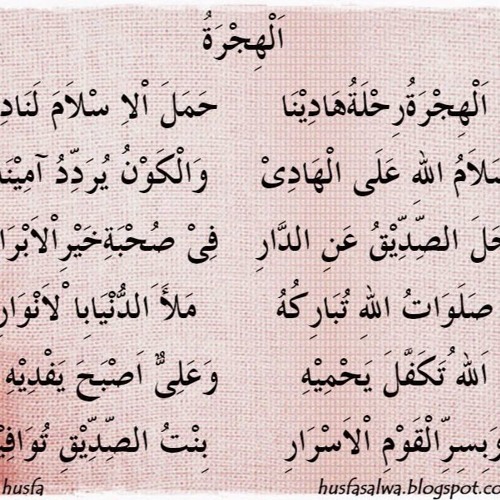 اَلْهِجْرَةُ
اَلْهِجْرَةُرِحْلَةُهَادِيْنَا حَمَلَ اْلاِ سْلَامَ
اللهِ عَلَى الْهَادِىْ وَالْكَوْنُ يُرَدِّدُ
الصِّدِّيْقُ عَنِ الدَّارِ فِىْ صُحْبَةِخَيْرِ
صَلَوَاتُ اللهِ تُبَارِكُهُ مَلأَ الدُّنْيَابِا ْلاَنْوَارِ
اَللهُ تَكَفَّلَ يَحْمِيْهِ وَعَلِىٌّ اَصْبَحَ يَفْدِيْهِ
وَبِسِرِّالْقَوْمِ اْلاَسْرَارِ بِنْتُ الصِّدِّيْقِ
husfa husfasalwa.blogspot.com